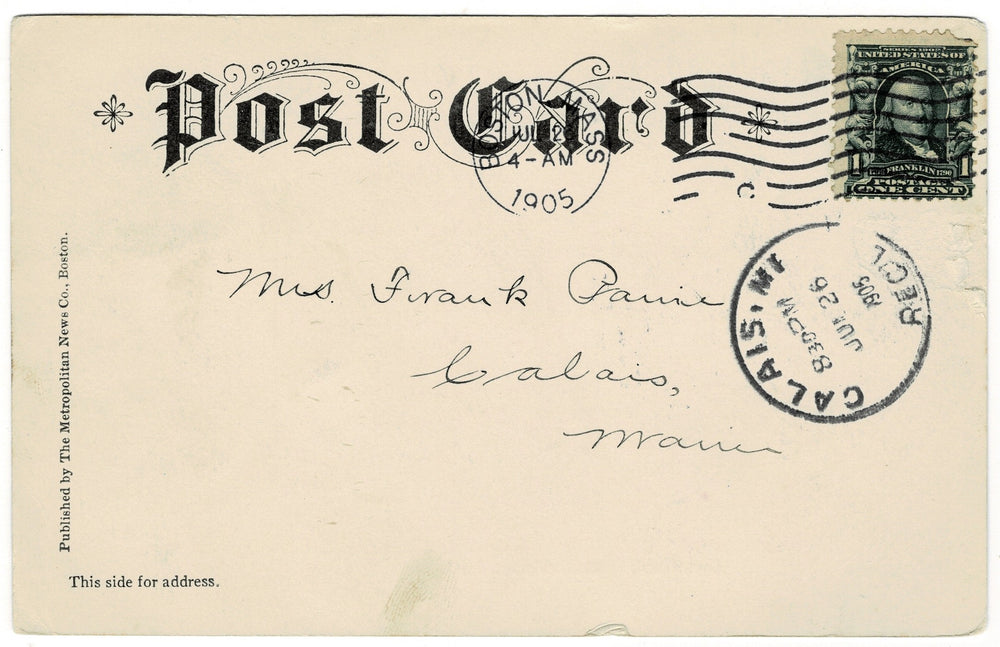 Post Card
BOSTON, MASS
JUL 26
4-AM
1905
C
SERIES 1902
UNITED STATES OF
AMERICA
1 FRANKLIN 1790 1
POSTAGE
ONE CENT
CALAIS, ME
8 30 PM
JUL 26
1905
REC'D
Mrs. Frank
Calais,
Maine
Published by The Metropolitan News Co., Boston.
This side for address.